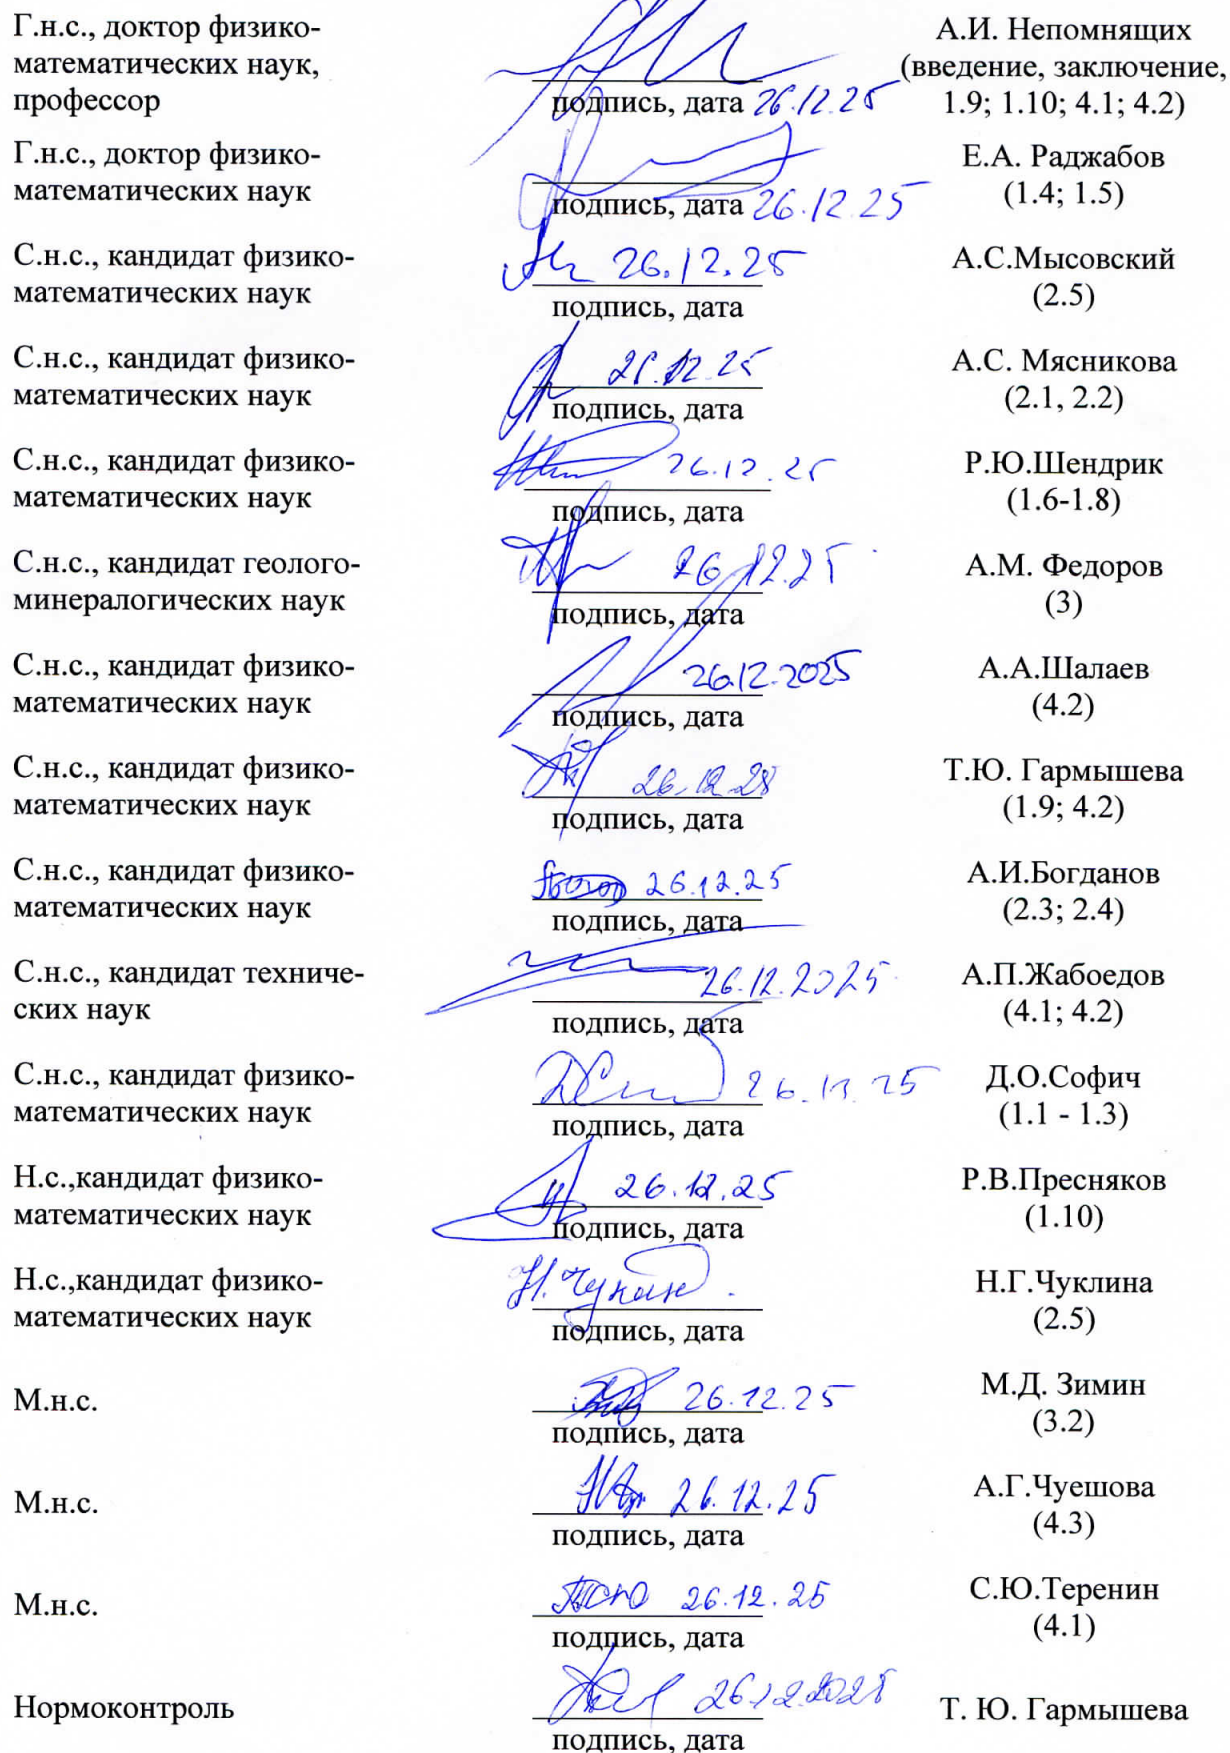 Г.н.с., доктор физико-
математических наук,
профессор
подпись, дата 26.12.25
А.И. Непомнящих
(введение, заключение,
1.9; 1.10; 4.1; 4.2)
Г.н.с., доктор физико-
математических наук
подпись, дата 26.12.25
Е.А. Раджабов
(1.4; 1.5)
С.н.с., кандидат физико-
математических наук
26.12.25
подпись, дата
А.С.Мысовский
(2.5)
С.н.с., кандидат физико-
математических наук
26.12.25
подпись, дата
А.С. Мясникова
(2.1, 2.2)
С.н.с., кандидат физико-
математических наук
26.12.25
подпись, дата
Р.Ю.Шендрик
(1.6-1.8)
С.н.с., кандидат геолого-
минералогических наук
26.12.25
подпись, дата
А.М. Федоров
(3)
С.н.с., кандидат физико-
математических наук
26.12.2025
подпись, дата
А.А.Шалаев
(4.2)
С.н.с., кандидат физико-
математических наук
26.12.25
подпись, дата
Т.Ю. Гармышева
(1.9; 4.2)
С.н.с., кандидат физико-
математических наук
26.12.25
подпись, дата
А.И.Богданов
(2.3; 2.4)
С.н.с., кандидат техниче-
ских наук
26.12.2025
подпись, дата
А.П.Жабоедов
(4.1; 4.2)
С.н.с., кандидат физико-
математических наук
26.12.25
подпись, дата
Д.О.Софич
(1.1 - 1.3)
Н.с.,кандидат физико-
математических наук
26.12.25
подпись, дата
Р.В.Пресняков
(1.10)
Н.с.,кандидат физико-
математических наук
подпись, дата
Н.Г.Чуклина
(2.5)
М.н.с.
26.12.25
подпись, дата
М.Д. Зимин
(3.2)
М.н.с.
26.12.25
подпись, дата
А.Г.Чуешова
(4.3)
М.н.с.
26.12.25
подпись, дата
С.Ю.Теренин
(4.1)
Нормоконтроль
26.12.2025
подпись, дата
Т. Ю. Гармышева